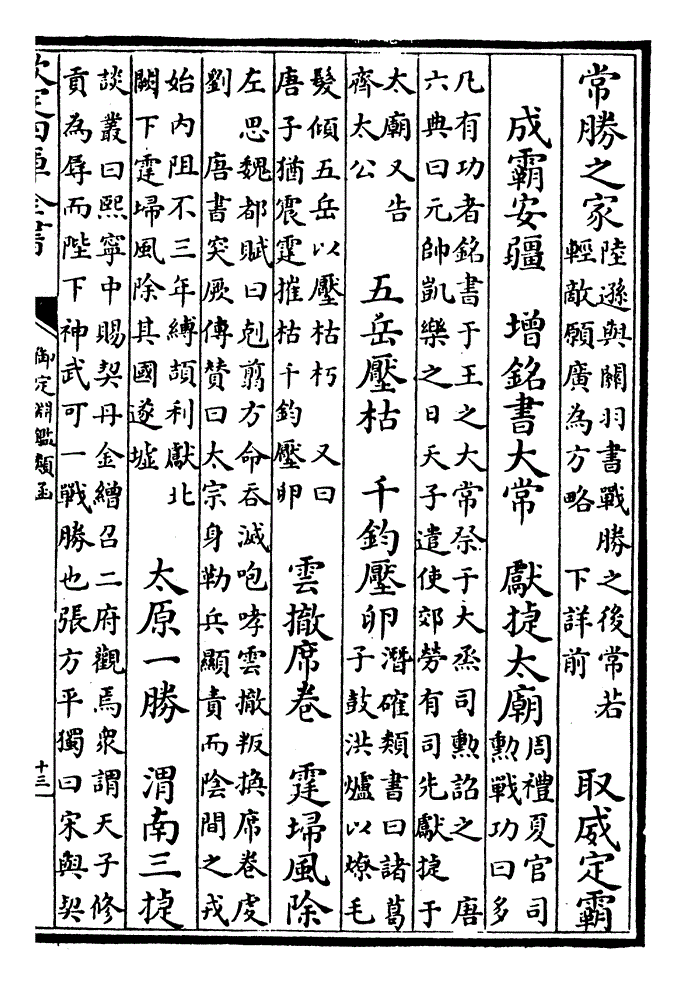 常勝之家 陸遜與關羽書戰勝之後常若
輕敵願廣為方略 下詳前 取威定霸
成霸安疆 增銘書大常 獻捷太廟 周禮夏官司
勲戰功曰多
凡有功者銘書于王之大常祭于大烝司勲詔之 唐
六典曰元帥凱樂之日天子遣使郊勞有司先獻捷于
太廟又告
齊太公 五岳壓枯 千鈞壓卵 潛確類書曰諸葛
子鼓洪爐以燎毛
髮傾五岳以壓枯朽 又曰
唐子猶震霆摧枯千鈞壓卵 雲撤席卷 霆埽風除
左思魏都賦曰尅翦方命吞滅咆哮雲撤叛換席卷虔
劉 唐書突厥傳贊曰太宗身勒兵顯責而陰間之戎
始内阻不三年縛頡利獻北
闕下霆埽風除其國遂墟 太原一勝 渭南三捷
談叢曰熙寧中賜契丹金繒召二府觀焉衆謂天子修
貢為辱而陛下神武可一戰勝也張方平獨曰宋與契
欽定四庫全書
御定淵鑑類函
十三